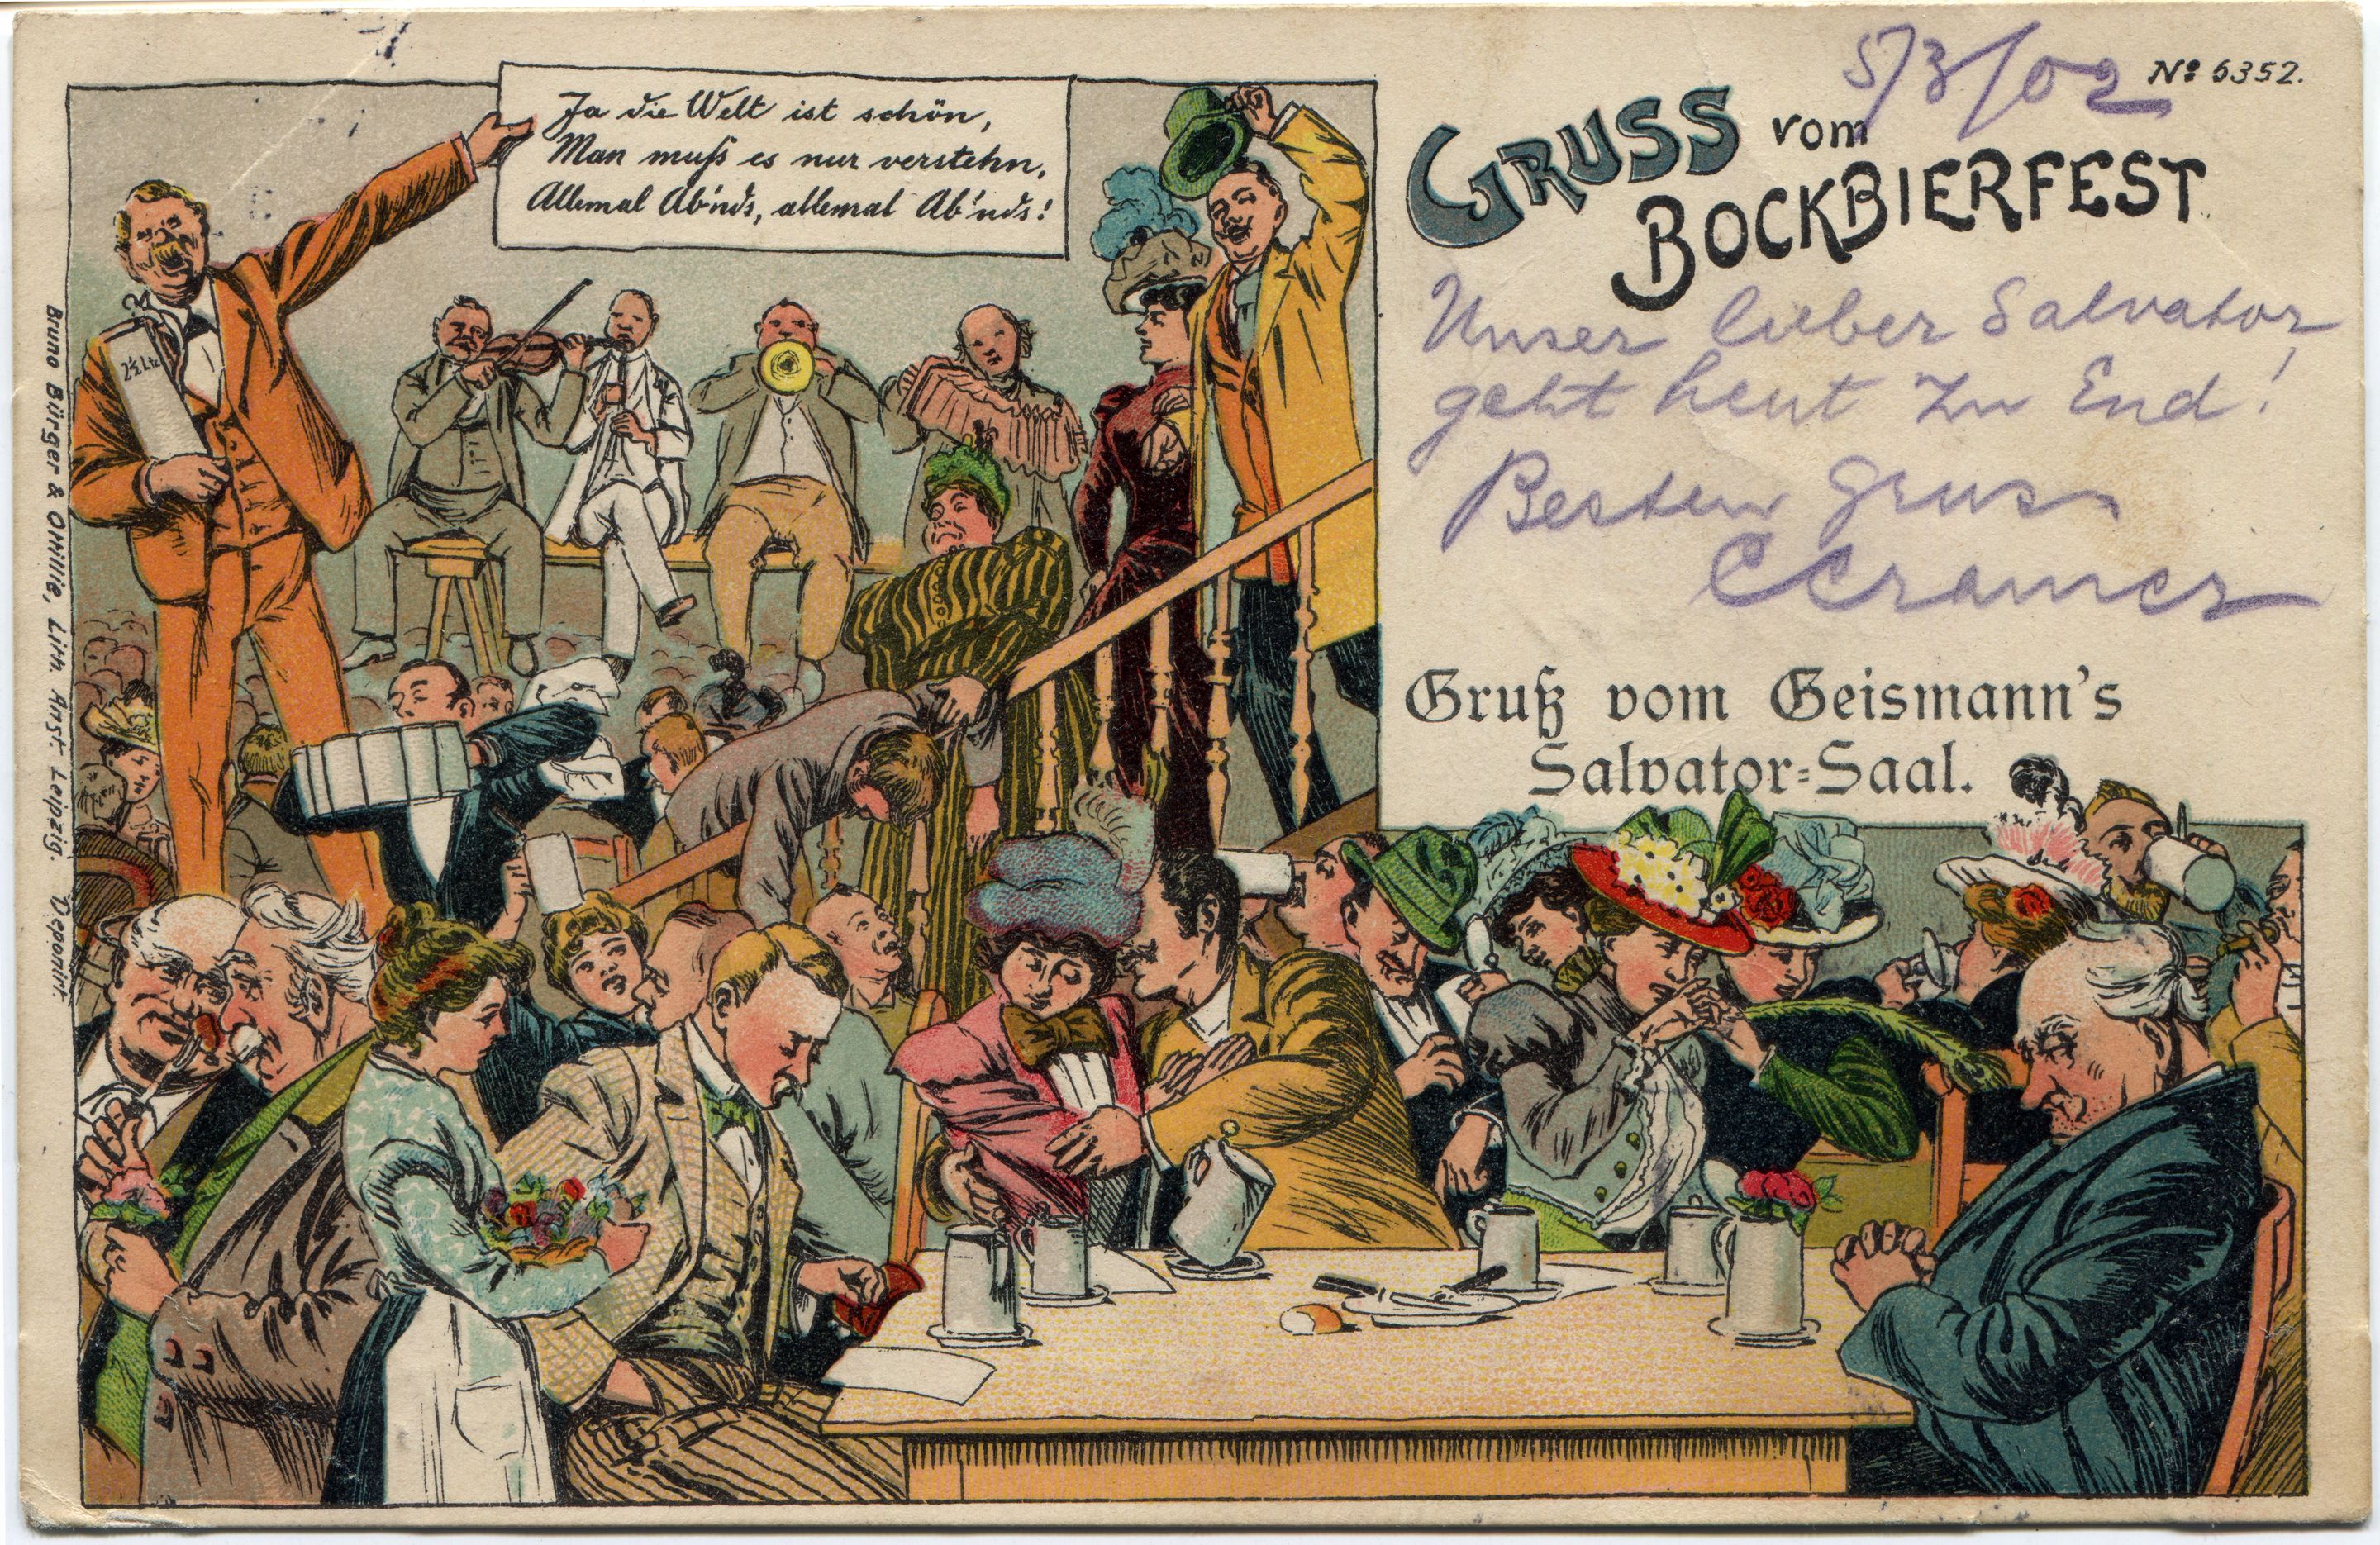 5/3/02
No 6352.
GRUSS vom
BOCKBIERFEST
Ja die Welt ist schön,
Man muß es nur verstehn,
Allemal Ab'nds, allemal Ab'nds!
2½ Ltr
Unser lieber Salvator
geht heut zu End!
Besten Gruss
CCramer
Gruß vom Geismann's
Salvator=Saal.
Bruno Bürger & Ottillie, Lith. Anst. Leipzig. Deponirt.